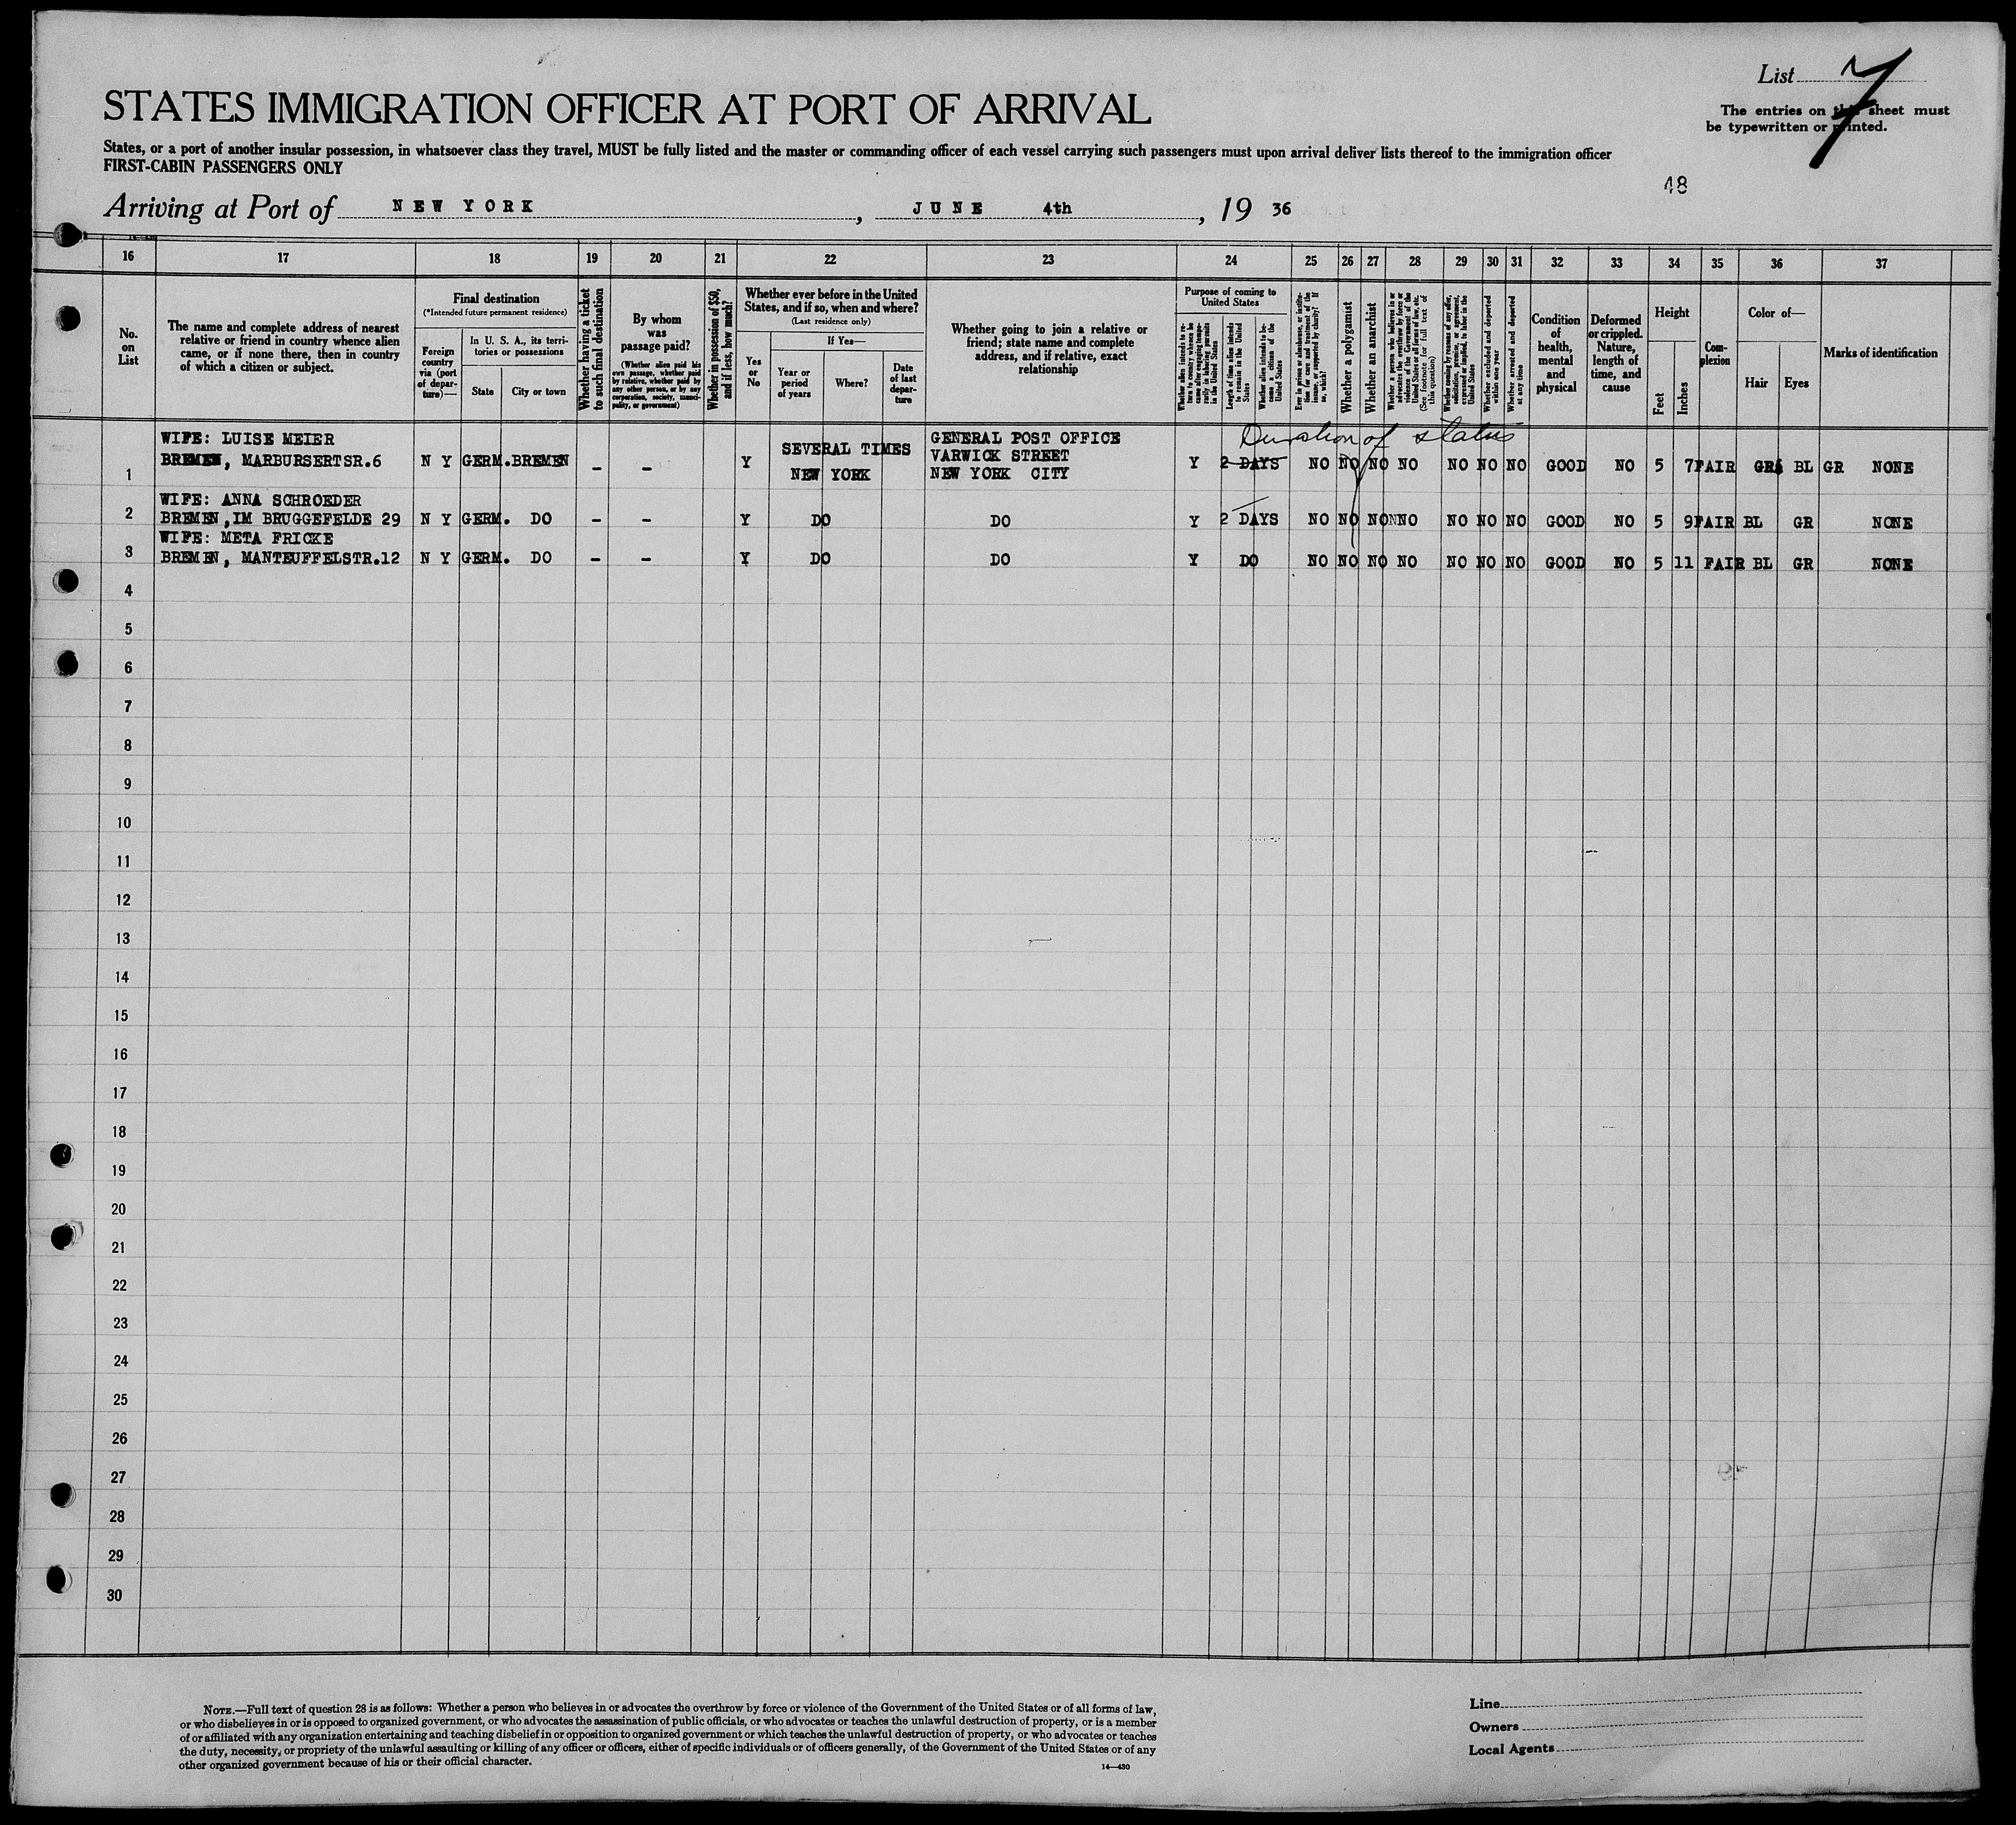 List 7
STATES IMMIGRATION OFFICER AT PORT OF ARRIVAL
The entries on this sheet must
be typewritten or printed.
States, or a port of another insular possession, in whatsoever class they travel, MUST be fully listed and the master or commanding officer of each vessel carrying such passengers must upon arrival deliver lists thereof to the immigration officer
FIRST-CABIN PASSENGERS ONLY
48
Arriving at Port of NEW YORK, JUNE 4th, 19 36
16 17 18 19 20 21 22 23 24 25 26 27 28 29 30 31 32 33 34 35 36 37
No.
on
List
The name and complete address of nearest
relative or friend in country whence alien
came, or if none there, then in country
of which a citizen or subject.
Final destination
(*Intended future permanent residence)
Foreign
country
via (port
of depar-
ture)—
In U. S. A., its terri-
tories or possessions
State
City or town
Whether having a ticket
to such final destination
By whom
was
passage paid?
(Whether alien paid his
own passage, whether paid
by relative, whether paid by
any other person, or by any
corporation, society, munici-
pality, or government)
Whether in possession of $50,
and if less, how much?
Whether ever before in the United
States, and if so, when and where?
(Last residence only)
Yes
or
No
If Yes—
Year or
period
of years
Where?
Date
of last
depar-
ture
Whether going to join a relative or
friend; state name and complete
address, and if relative, exact
relationship
Purpose of coming to
United States
Whether alien intends to re-
turn to country whence he
came after engaging tempo-
rarily in laboring pursuits
in the United States
Length of time alien intends
to remain in the United
States
Whether alien intends to be-
come a citizen of the
United States
Ever in prison or almshouse, or institu-
tion for care and treatment of the
insane, or supported by charity? If
so, which?
Whether a polygamist
Whether an anarchist
Whether a person who believes in or
advocates the overthrow by force or
violence of the Government of the
United States or all forms of law, etc.
(See footnote for full text of
this question)
Whether coming by reasons of any offer,
solicitation, promise, or agreement,
expressed or implied, to labor in the
United States
Whether excluded and deported
within one year
Whether arrested and deported
at any time
Condition
of
health,
mental
and
physical
Deformed
or crippled.
Nature,
length of
time, and
cause
Height
Feet
Inches
Com-
plexion
Color of—
Hair
Eyes
Marks of identification
Duration of status
1 WIFE: LUISE MEIER
BREMEN, MARBURSERTSR.6 N Y GERM. BREMEN – – Y SEVERAL TIMES
NEW YORK
GENERAL POST OFFICE
VARWICK STREET
NEW YORK CITY
Y 2 DAYS NO NO NO NO NO NO NO GOOD NO 5 7 FAIR BL GR NONE
2 WIFE: ANNA SCHROEDER
BREMEN, IM BRUGGEFELDE 29 N Y GERM. DO – – Y DO DO Y 2 DAYS NO NO NO NO NO NO NO GOOD NO 5 9 FAIR BL GR NONE
3 WIFE: META FRICKE
BREMEN, MANTEUFFELSTR.12 N Y GERM. DO – – Y DO DO Y DO NO NO NO NO NO NO NO GOOD NO 5 11 FAIR BL GR NONE
4
5
6
7
8
9
10
11
12
13
14
15
16
17
18
19
20
21
22
23
24
25
26
27
28
29
30
NOTE.—Full text of question 28 is as follows: Whether a person who believes in or advocates the overthrow by force or violence of the Government of the United States or of all forms of law,
or who disbelieves in or is opposed to organized government, or who advocates the assassination of public officials, or who advocates or teaches the unlawful destruction of property, or is a member
of or affiliated with any organization entertaining and teaching disbelief in or opposition to organized government or which teaches the unlawful destruction of property, or who advocates or teaches
the duty, necessity, or propriety of the unlawful assaulting or killing of any officer or officers, either of specific individuals or of officers generally, of the Government of the United States or of any
other organized government because of his or their official character.
14—430
Line
Owners
Local Agents